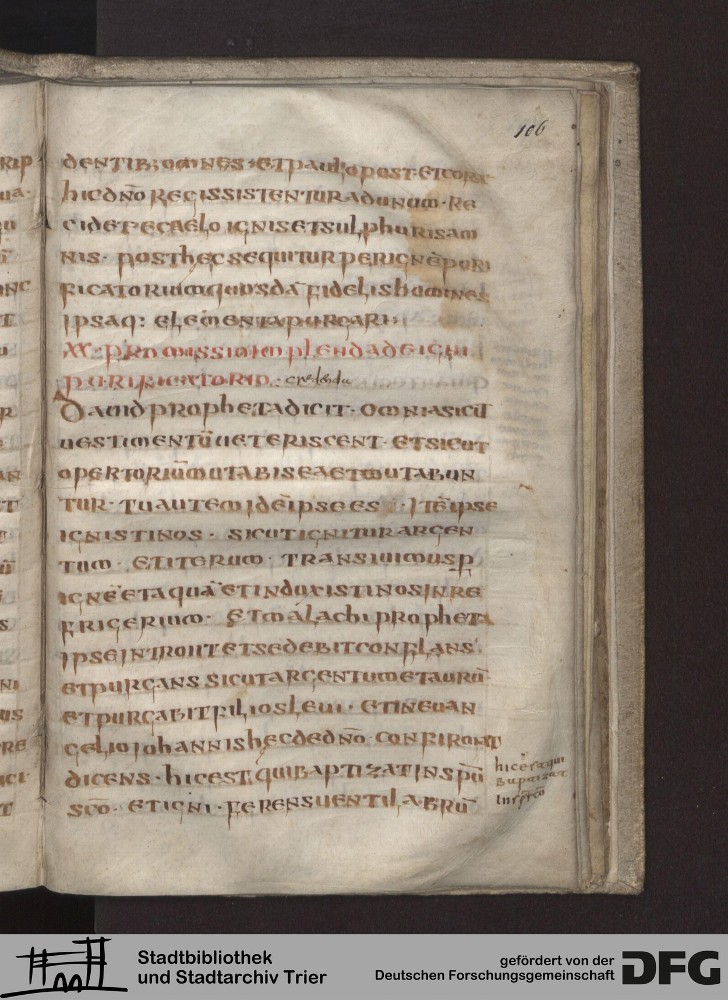 106
dentib; omnes · et paulo post · et cora
hic dño regis sistentur adunum · re
cidet · e caelo ignis et sulphuris am
nis · post hęc sequitur per ignē puri
ficatorium quosdā fidelis homines
ipsaq: elementa purgari
XX · pro missio implenda de igni
purificatorio · credendu
David propheta dicit · omnia sicut
uestimentū ueterescent · et sicut
opertoriū mutabis ea et mutabun
tur · tu autem idē ipse es · itē ipse
ignistinos · sicut ignitur argen
tum · et iterum · transiuimus p
ignē et aquā et induxisti nos in re
frigerium · et malachi propheta
ipse introiit et sedebit conflans
et purgans sicut argentum et aurū
et purgabit filios leui · et in euan
gelio iohannis hęc de dño confirmat
dicens · hic est qui baptizat in spū
sco · et igni · ferens uentilabrū
hic est qui
baptizat
in spū sco
Stadtbibliothek
und Stadtarchiv Trier
gefördert von der
Deutschen Forschungsgemeinschaft
DFG